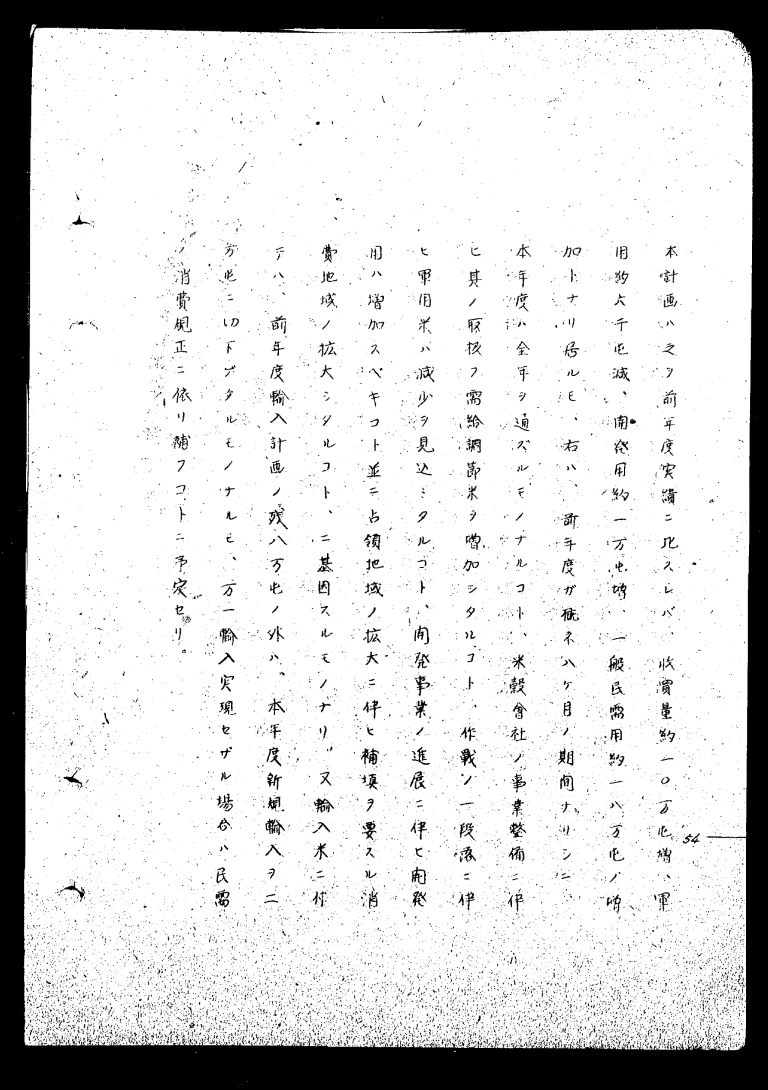 本計画ハ之ヲ前年度実績ニ比スレバ、收買量約一〇万屯増、軍
用約六千屯減、開発用約一万屯増、一般民需用約一八万屯ノ増
加トナリ居ルモ、右ハ、前年度ガ概ネ八ケ月ノ期間ナリシニ、
本年度ハ全年ヲ通ズルモノナルコト、米穀會社ノ事業整備ニ伴
ヒ其ノ取扱フ需給調節米ヲ増加シタルコト、作戰ノ一段落ニ伴
ヒ軍用米ハ減少ヲ見込ミタルコト、開発事業ノ進展ニ伴ヒ開発
用ハ増加スベキコト並ニ占領地域ノ拡大ニ伴ヒ補填ヲ要スル消
費地域ノ拡大シタルコト、ニ基因スルモノナリ。又輸入米ニ付
テハ、前年度輸入計画ノ残八万屯ノ外ハ、本年度新規輸入ヲ二
万屯ニ切下ゲタルモノナルモ、万一輸入実現セザル場合ハ民需
ノ消費規正ニ依リ補フコトニ予定セリ。
54